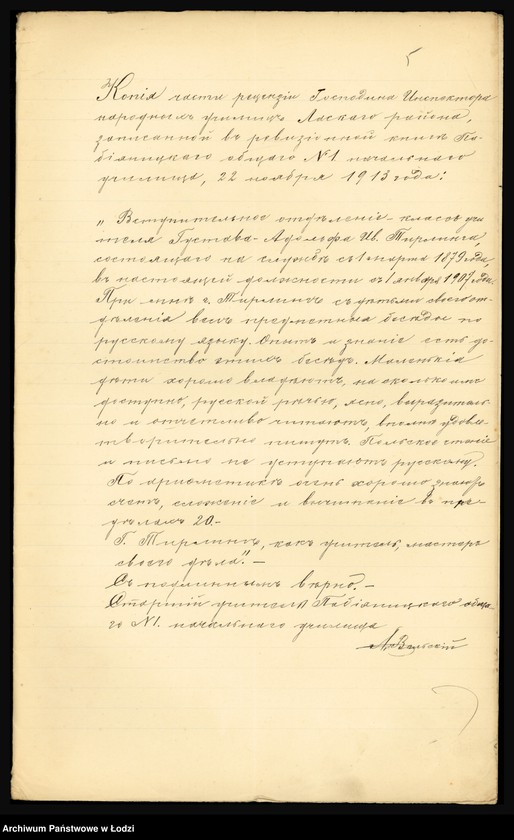 5
Копія части рецензіи Господина Инспектора
народныхъ училищъ Ласкаго района,
записанной въ ревизіонной книгѣ Па-
біяницкаго общаго №1 начальнаго
училища, 22 ноября 1913 года:
„Вступительное отдѣленіе классъ учи
теля Густава-Адольфа Ив. Тирлинга,
состоящаго на службѣ съ 1 марта 1879 года,
въ настоящей должности съ 1 января 1907 года.
При мнѣ г. Тирлингъ съ дѣтьми своего от-
дѣленія велъ предметныя бесѣды по
русскому языку. Опытъ и знаніе есть до-
стоинство этихъ бесѣдъ. Маленькія
дѣти хорошо владѣютъ, на сколько имъ
доступно, русской рѣчью, ясно, выразитель-
но и отчетливо читаютъ, вполнѣ удовле-
творительно пишутъ. Польское чтеніе
и письмо не уступаютъ русскому.
По ариѳметикѣ очень хорошо знаютъ
счетъ, сложеніе и вычитаніе въ пре-
дѣлахъ 20.-
Г. Тирлингъ, какъ учитель, мастеръ
своего дѣла." —
Съ подлиннымъ вѣрно. —
Старшій учитель Пабіяницкаго обща-
го №1. начальнаго училища
А. Вольскій
Archiwum Państwowe w Łodzi